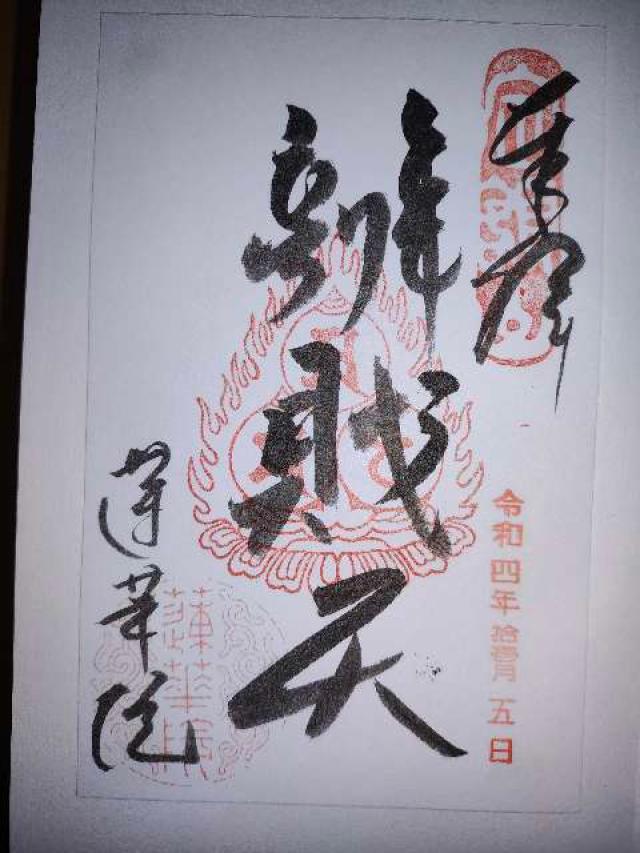 奉拝
令和四年拾壹月五日
辨財天
蓮華院
蓮華院